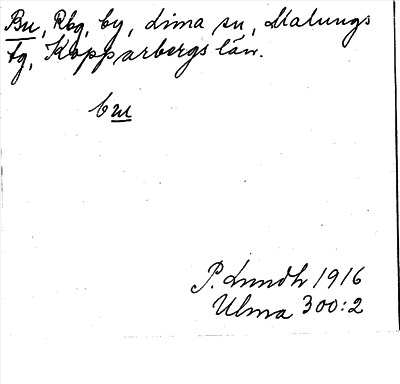 Bu, Rbg, by, Lima sn, Malungs
tg, Kopparbergs län.
bu
P. Lundh 1916
Ulma 300:2